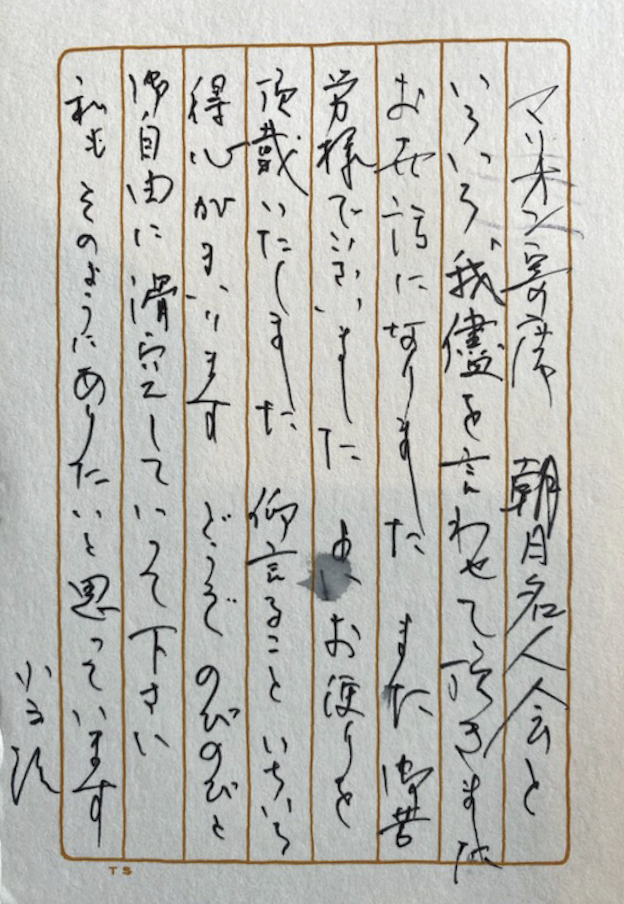 マリオン寄席 朝日名人会と
いろいろ我儘を言わせて頂きました
お世話になりました また御苦
労様でございました お便りを
頂戴いたしました 仰言ること いちいち
得心がまいります どうぞ のびのびと
御自由に滑空していって下さい
私も そのようにありたいと思っています
小三治
TS